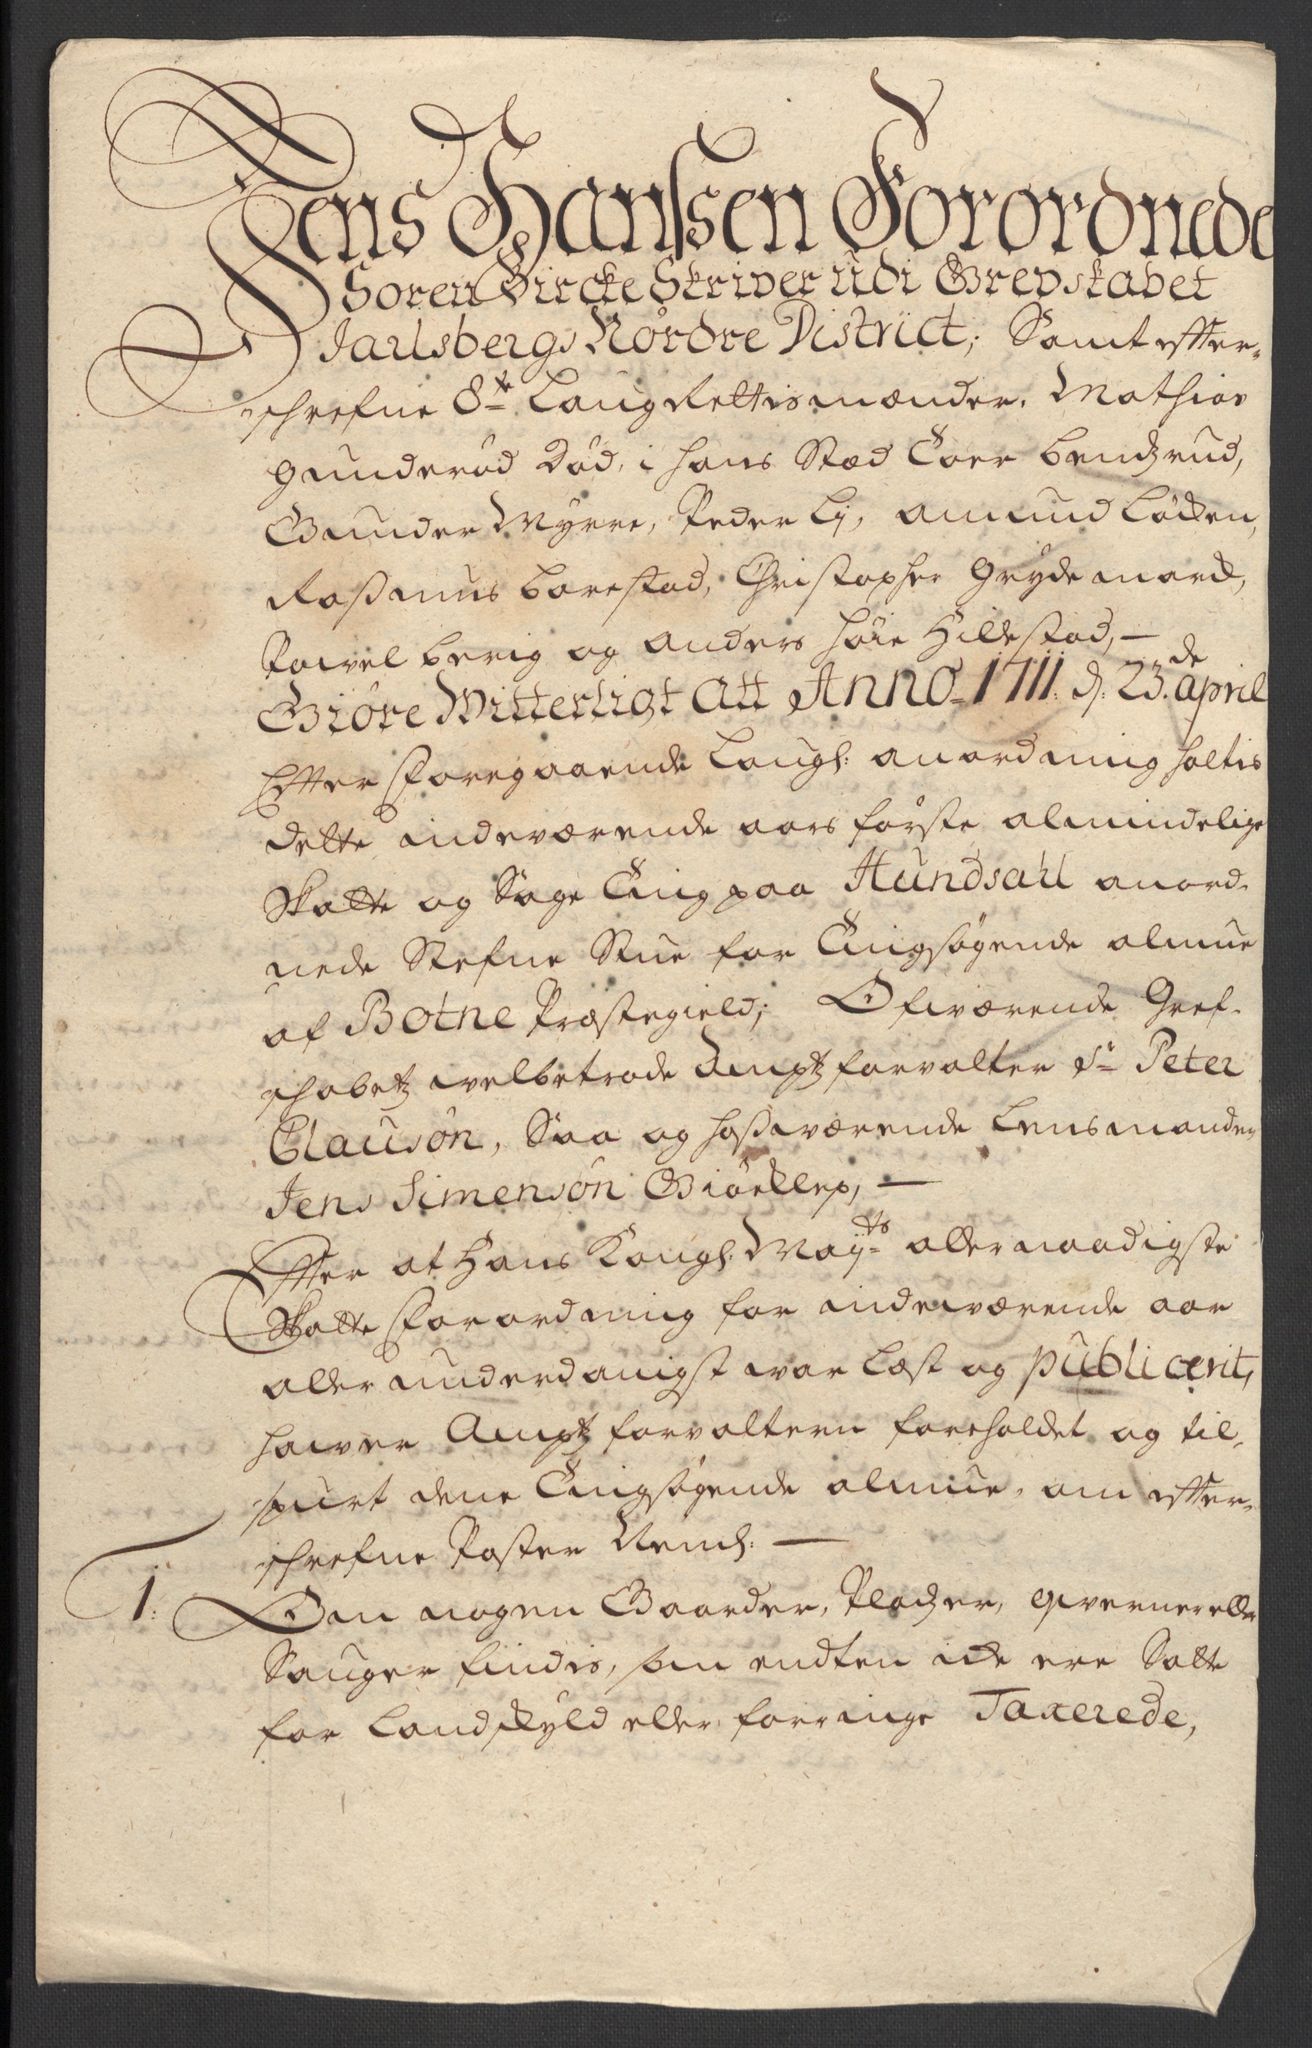 Jens Hanssen Forordnede
Soren Bircke Skriver udi Grevskabet
Jarlsbergs Nordre District; Samt effter-
schrefne 8te Laug Rettismænder, Mathias
Gunderød Død, i hans Stæd Toer Bendzrud,
Gunder Myrre, Peder Lij, Amund Løcken,
Rasmus Borestad, Christopher Grydemarck,
Powel Berig og Anders Høie Hillestad, —
Giöre Witterligt Att Anno 1711. d: 23de april
Effter Foregaaende Laugl: anordning holtis
dette indeværende aars første almindelige
Skatte og Sage Ting paa Hundsall anord-
nede Stefne Stue for Tingsøgende almue
af Botne Præstegield; Ofwærende Gref-
schabetz welbetrode Amptzforvalter Sr Peter
Clausøn, Saa og hoswærende Lensmanden
Jens Simensøn Giöeklep, —
Effter at Hans Kongl: Mayts allernaadigste
Skatte Forordning for indewærende aar
allerunderdanigst war Læst og publicerit,
hawer Amptzforvaltern foreholdet og til-
spurt dene Tingsøgende almue, om effter-
schrefne Poster Neml: —
1: Om nogen Gaarder, Pladzer, Qwerner eller
Sauger findis, som endten icke ere Satte
for Landskyld eller forringe Taxerede,